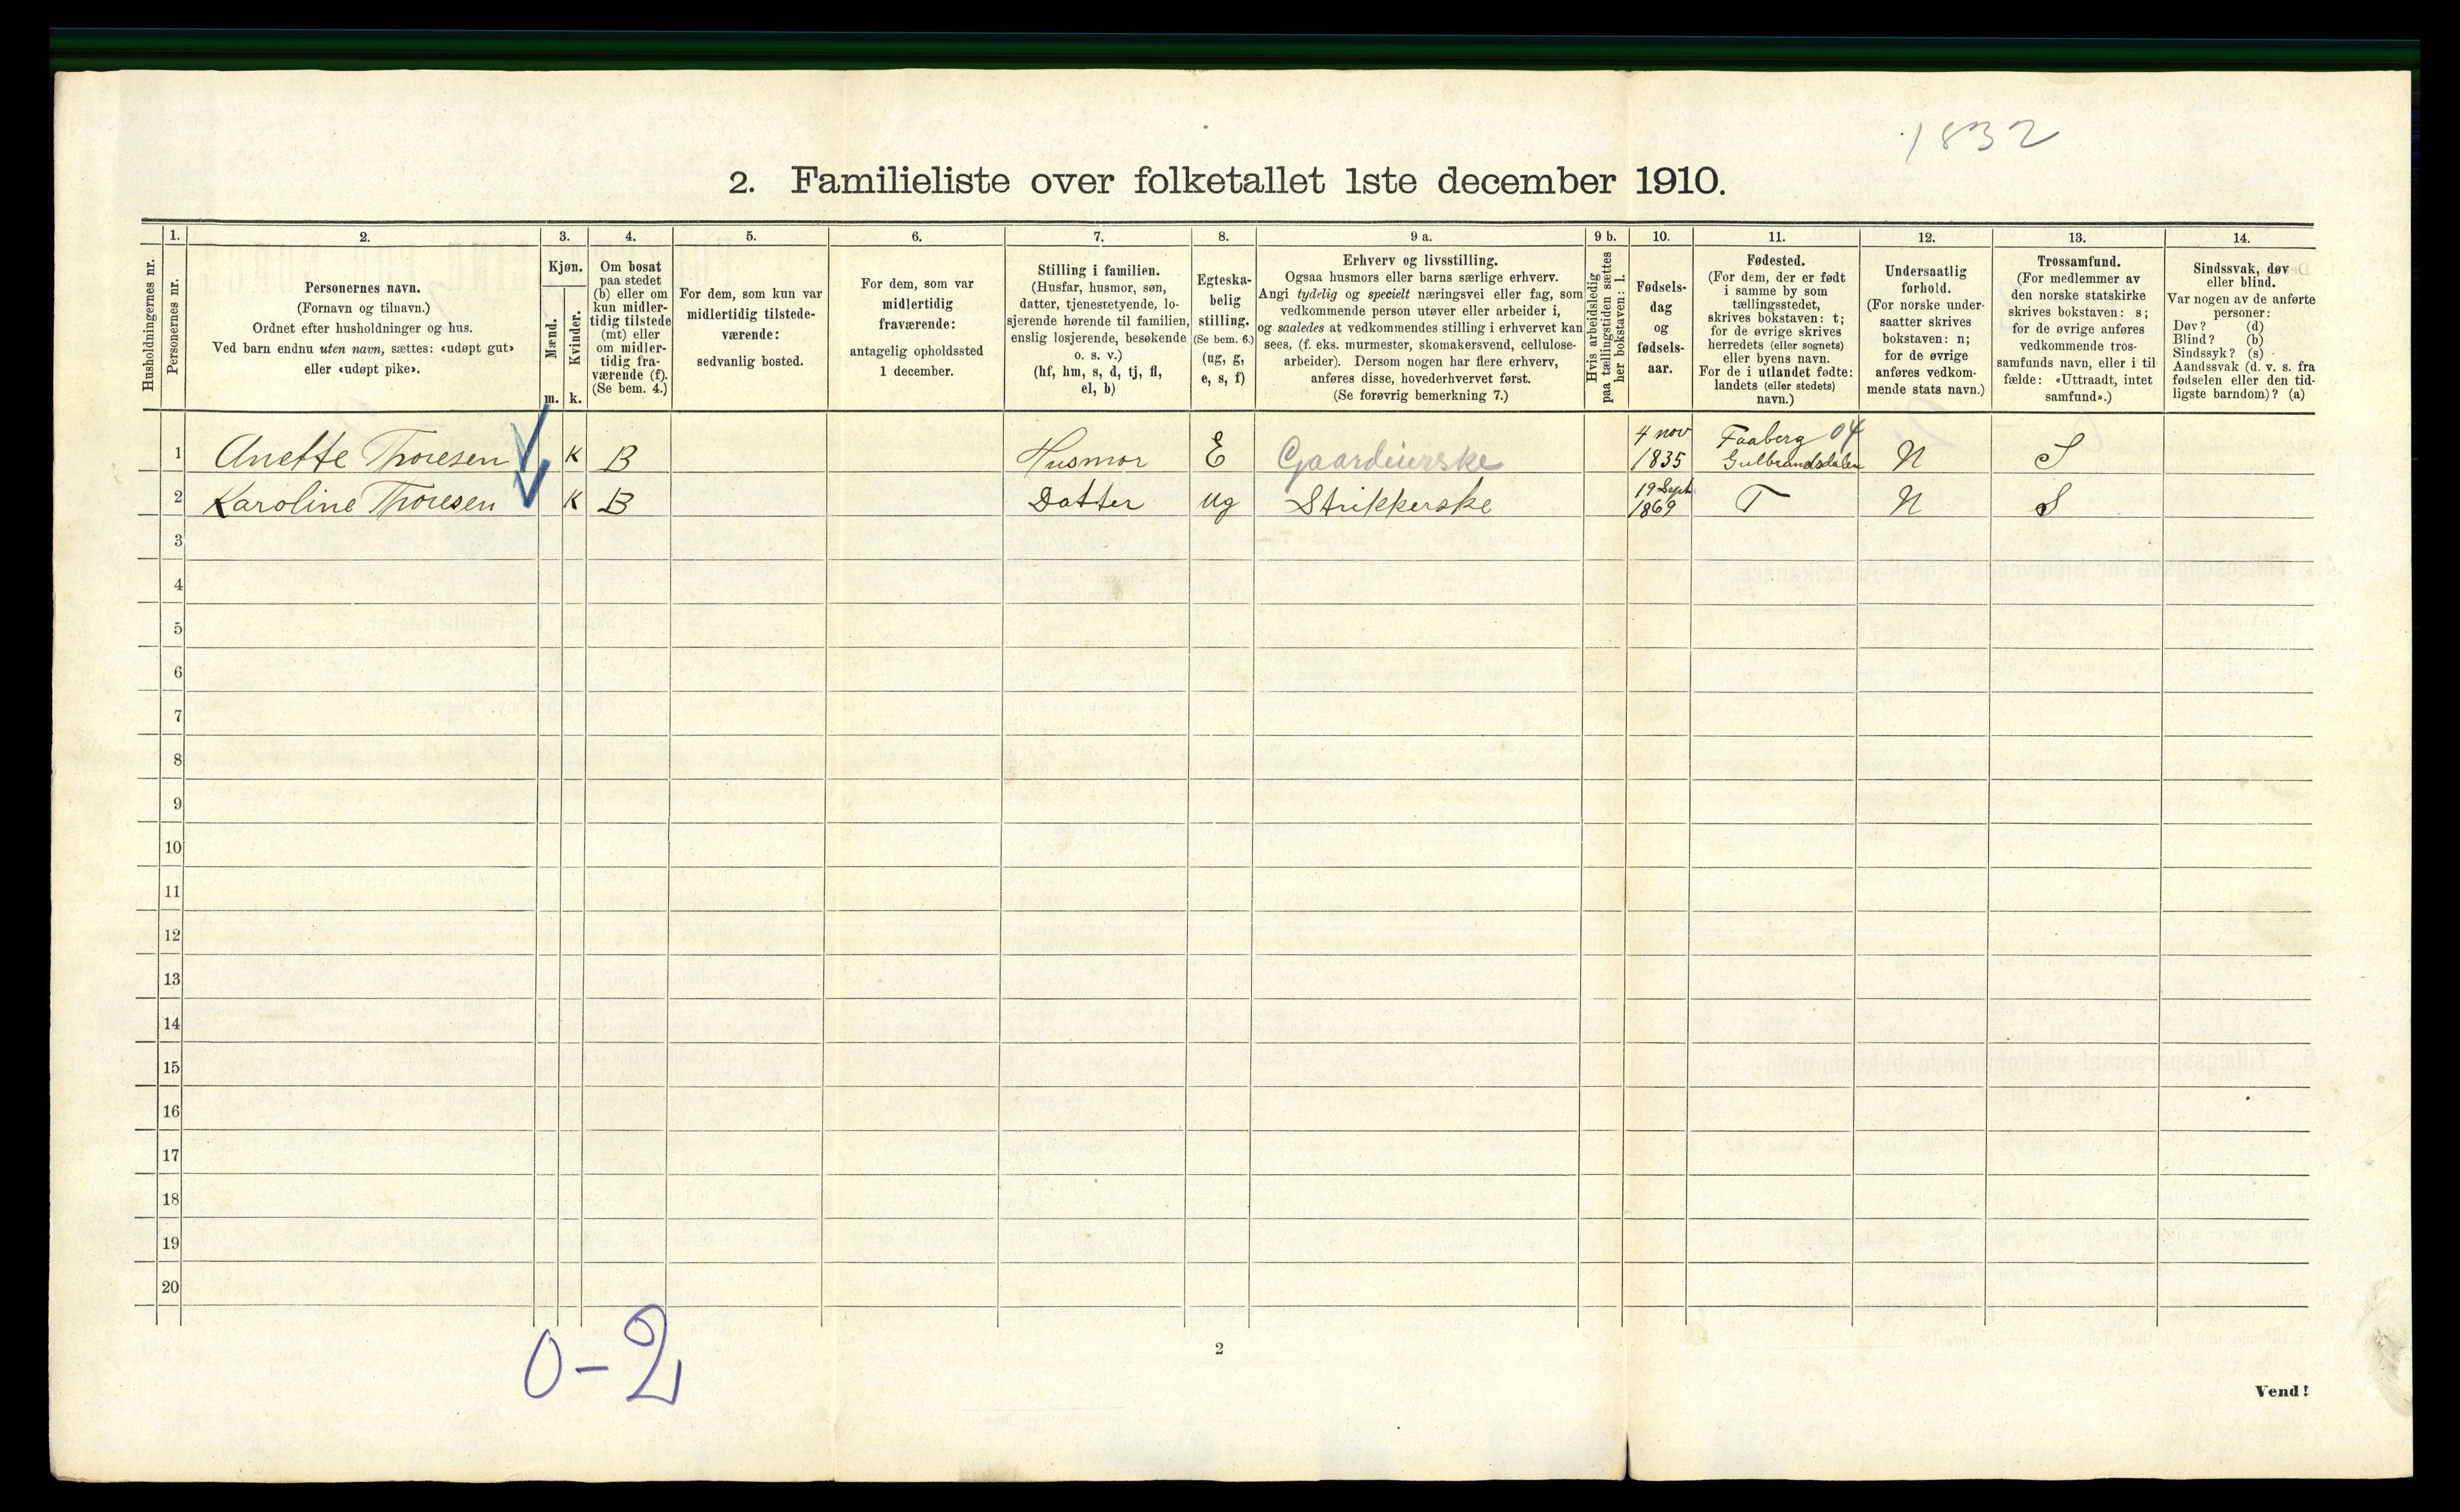 1832
2. Familieliste over folketallet 1ste december 1910.
Husholdningernes nr.
1.
Personernes nr.
2.
Personernes navn.
(Fornavn og tilnavn.)
Ordnet efter husholdninger og hus.
Ved barn endnu uten navn, sættes: «udøpt gut»
eller «udøpt pike».
3.
Kjøn.
Mænd.
Kvinder.
m. k.
4.
Om bosat
paa stedet
(b) eller om
kun midler-
tidig tilstede
(mt) eller
om midler-
tidig fra-
værende (f).
(Se bem. 4.)
5.
For dem, som kun var
midlertidig tilstede-
værende:
sedvanlig bosted.
6.
For dem, som var
midlertidig
fraværende:
antagelig opholdssted
1 december.
7.
Stilling i familien.
(Husfar, husmor, søn,
datter, tjenestetyende, lo-
sjerende hørende til familien,
enslig losjerende, besøkende
o. s. v.)
(hf, hm, s, d, tj, fl,
el, b)
8.
Egteska-
belig
stilling.
(Se bem. 6.)
(ug, g,
e, s, f)
9 a.
Erhverv og livsstilling.
Ogsaa husmors eller barns særlige erhverv.
Angi tydelig og specielt næringsvei eller fag, som
vedkommende person utøver eller arbeider i,
og saaledes at vedkommendes stilling i erhvervet kan
sees, (f. eks. murmester, skomakersvend, cellulose-
arbeider). Dersom nogen har flere erhverv,
anføres disse, hovederhvervet først.
(Se forøvrig bemerkning 7.)
9 b.
Hvis arbeidsledig
paa tællingstiden sættes
her bokstaven: l.
10.
Fødsels-
dag
og
fødsels-
aar.
11.
Fødested.
(For dem, der er født
i samme by som
tællingsstedet,
skrives bokstaven: t;
for de øvrige skrives
herredets (eller sognets)
eller byens navn.
For de i utlandet fødte:
landets (eller stedets)
navn.)
12.
Undersaatlig
forhold.
(For norske under-
saatter skrives
bokstaven: n;
for de øvrige
anføres vedkom-
mende stats navn.)
13.
Trossamfund.
(For medlemmer av
den norske statskirke
skrives bokstaven: s;
for de øvrige anføres
vedkommende tros-
samfunds navn, eller i til
fælde: «Uttraadt, intet
samfund».)
14.
Sindssvak, døv
eller blind.
Var nogen av de anførte
personer:
Døv? (d)
Blind? (b)
Sindssyk? (s)
Aandssvak (d. v. s. fra
fødselen eller den tid-
ligste barndom)? (a)
1 Anette Thoresen K B Husmor E Gaardeierske 4 nov 1835 Faaberg 04 Gulbrandsdalen N S
2 Karoline Thoresen K B Datter ug Strikkerske 19 Sept 1869 T N S
3
4
5
6
7
8
9
10
11
12
13
14
15
16
17
18
19
20
0-2
2
Vend!